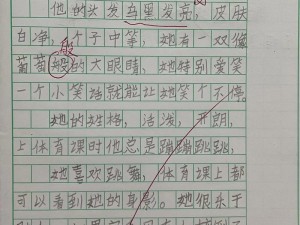 他的头发乌黑发亮，皮肤
白净，个子中等，她有一双像
葡萄般的大眼睛，她特别爱笑
一个小笑话就能让她笑个不停
她的性格，活泼，开朗，
上体育课时他总是蹦蹦跳跳，
她喜欢跳舞，体育课上都
可以看到她的身影。她很乐于